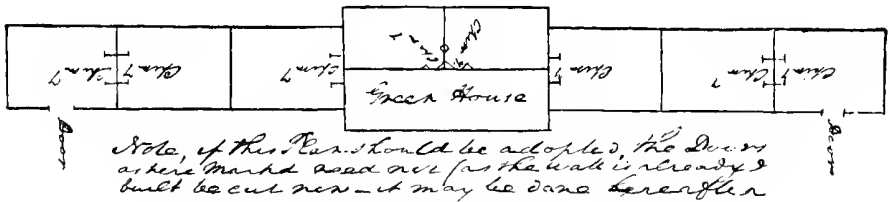 Chimy
Chimy
Chimy
Chimy
Chimy
Chimy
Chimy
Chimy
Green House
Door
Door
Note, if this Plan should be adopted, the Doors
as here markd need not (as the wall is already
built be cut now – it may be done hereafter